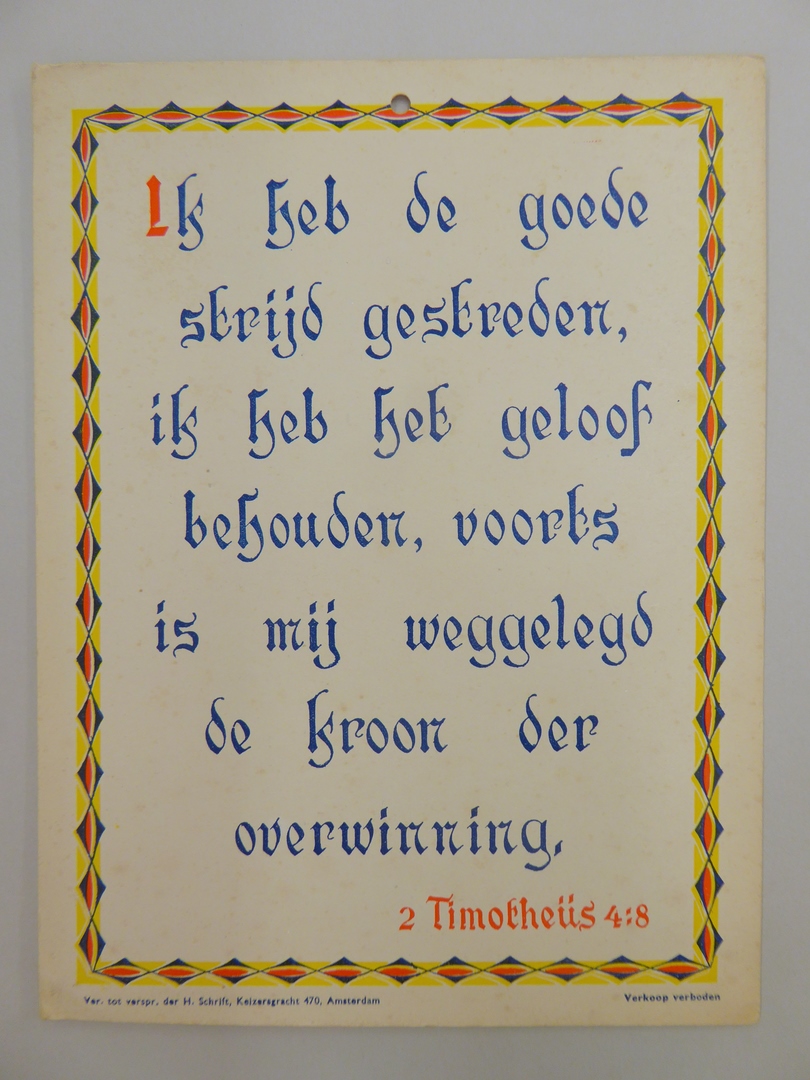 Ik heb de goede
strijd gestreden,
ik heb het geloof
behouden, voorts
is mij weggelegd
de kroon der
overwinning.
2 Timotheüs 4:8
Ver. tot verspr. der H. Schrift, Keizersgracht 470, Amsterdam
Verkoop verboden